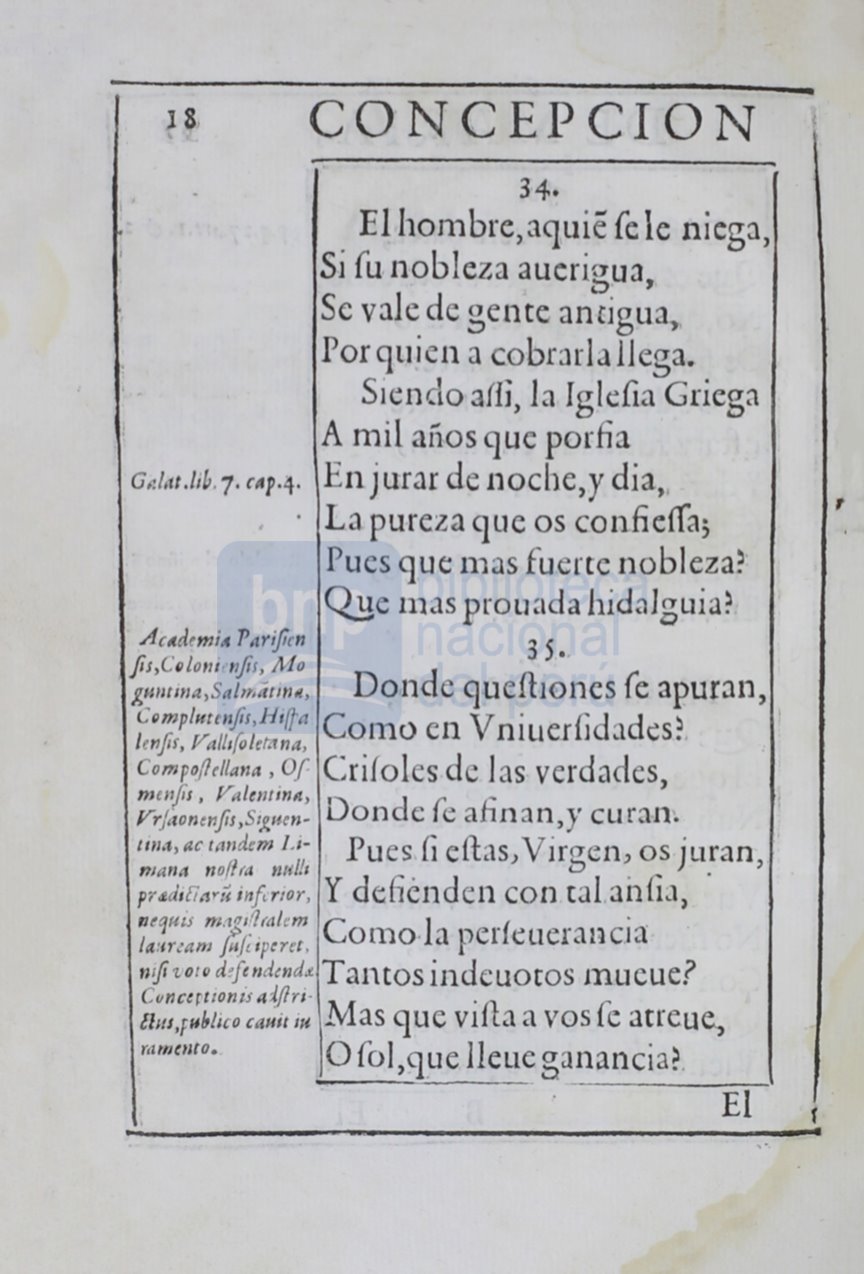 18 CONCEPCION
34.
El hombre, aquiē ſe le niega,
Si ſu nobleza auerigua,
Se vale de gente antigua,
Por quien a cobrarla llega.
Siendo aſſi, la Igleſia Griega
A mil años que porfia
En jurar de noche, y dia,
La pureza que os confieſſa;
Pues que mas fuerte nobleza?
Que mas prouada hidalguia?
35.
Donde queſtiones ſe apuran,
Como en Vniuerſidades?
Criſoles de las verdades,
Donde ſe afinan, y curan.
Pues ſi eſtas, Virgen, os juran,
Y defienden con tal anſia,
Como la perſeuerancia
Tantos indeuotos mueue?
Mas que viſta a vos ſe atreue,
O ſol, que lleue ganancia?
El
Galat. lib. 7. cap. 4.
Academia Pariſien
ſis, Colonienſis, Mo
guntina, Salmatina,
Complutenſis, Hiſpa
lenſis, Valliſoletana,
Compoſtellana, Oſ-
menſis, Valentina,
Vrſaonenſis, Siguen-
tina, ac tandem Li-
mana noſtra nulli
prædictarū inferior,
nequis magiſtralem
lauream ſuſciperet,
niſi voto defendendæ
Conceptionis adſtri-
ctus, publico cauit iu
ramento.
bnp biblioteca
nacional
del perú